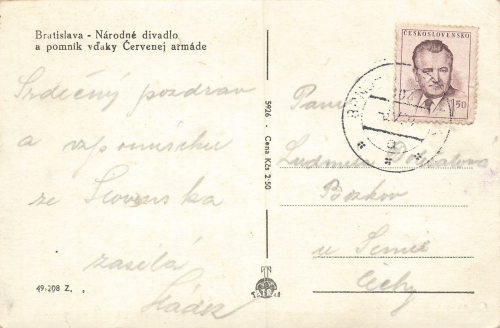 Bratislava - Národné divadlo
a pomník vďaky Červenej armáde
Srdečný pozdrav
a vzpomínku
ze Slovenska
zasílá
5926 - Cena Kčs 2·50
49-208 Z.
ČESKOSLOVENSKO
1 50
Paní
Ludmila
Bozkov
u Semil
Čechy